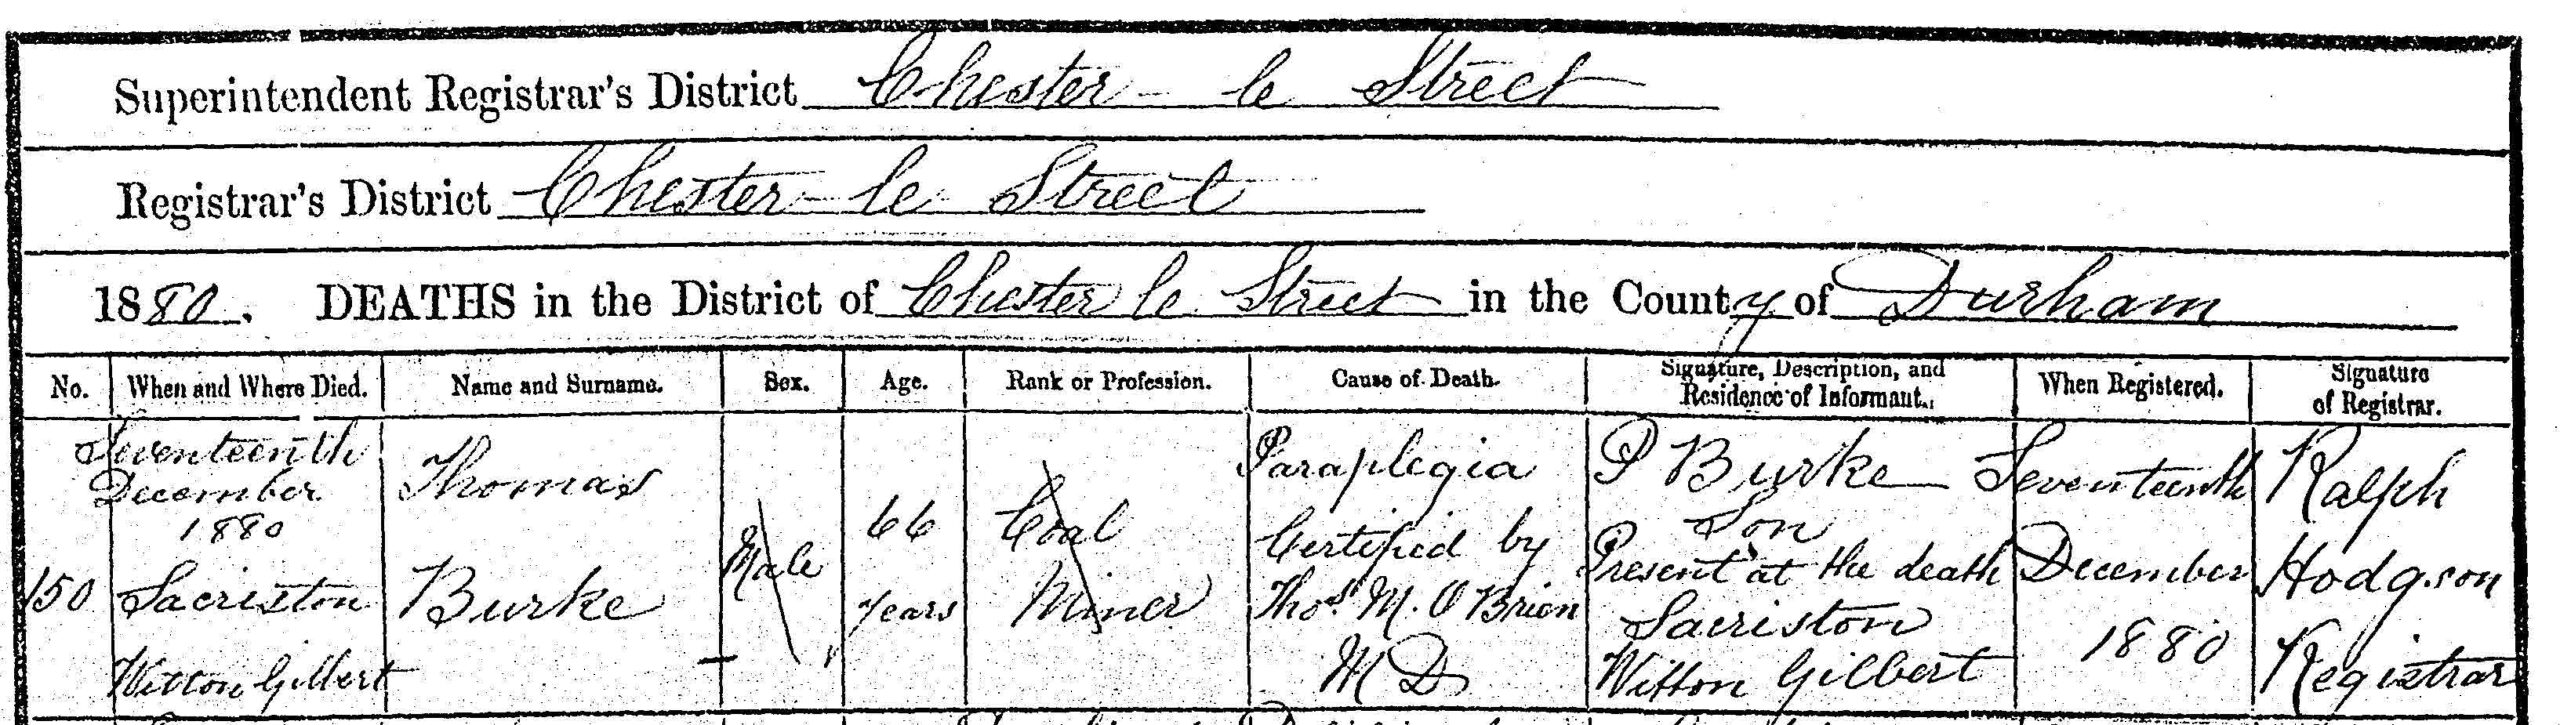 Superintendent Registrar's District Chester - le Street
Registrar's District Chester - le Street
1880. DEATHS in the District of Chester le Street in the County of Durham
No. When and Where Died. Name and Surname. Sex. Age. Rank or Profession. Cause of Death. Signature, Description, and Residence of Informant. When Registered. Signature of Registrar.
150
Seventeenth
December
1880
Sacriston
Witton Gilbert
Thomas
Burke
Male
66
years
Coal
Miner
Paraplegia
Certified by
Thos. M. O Brien
M D
P Burke
Son
Present at the death
Sacriston
Witton Gilbert
Seventeenth
December
1880
Ralph
Hodgson
Registrar